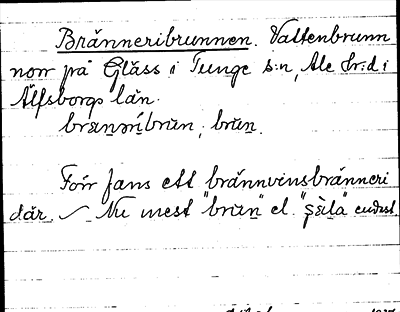 Bränneribrunnen. Vattenbrunn
norr på Gläss i Tunge s:n, Ale hrd i
Älfsborgs län.
bränəríbrun; brun.
Förr fans ett brännvinsbränneri
där. Nu mest "brun" el.